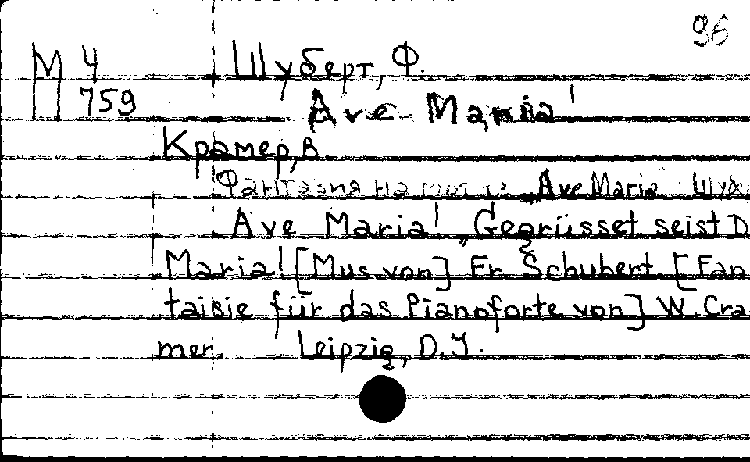 96
М 4 Шуберт, Ф.
П 759 Ave Maria!
Крамер, В
Фантазия на „Ave Maria
Ave Maria! „Gegrüsset seist D
Maria! [Mus von] Fr. Schubert [Fan
taisie für das Pianoforte von] W. Cra
mer. Leipzig, D.J.